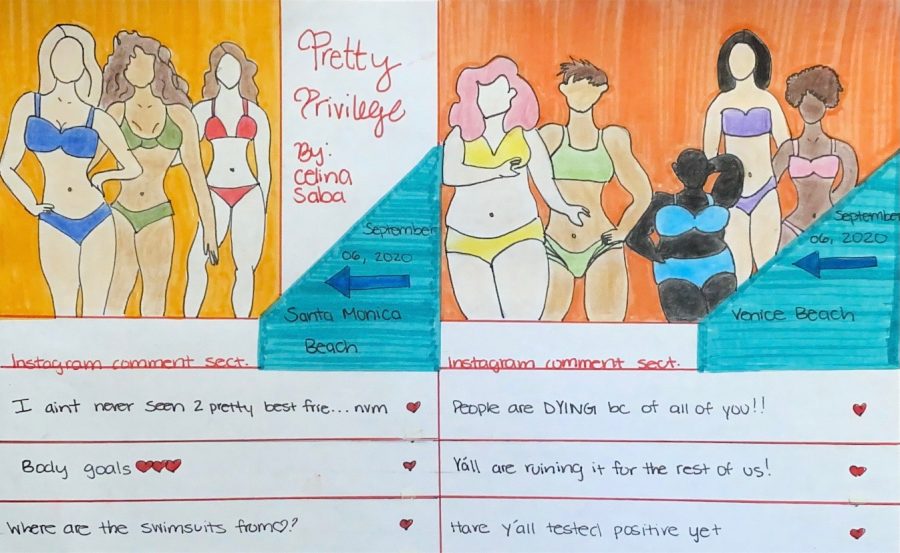 Pretty
Privilege
By:
Celina
Saba
September
06, 2020
Santa Monica
Beach
Instagram comment sect.
I aint never seen 2 pretty best frie... nvm
Body goals ❤❤❤
Where are the swimsuits from♡?
September
06, 2020
Venice Beach
Instagram comment sect.
People are DYING bc of all of you!!
Y'all are ruining it for the rest of us!
Have y'all tested positive yet